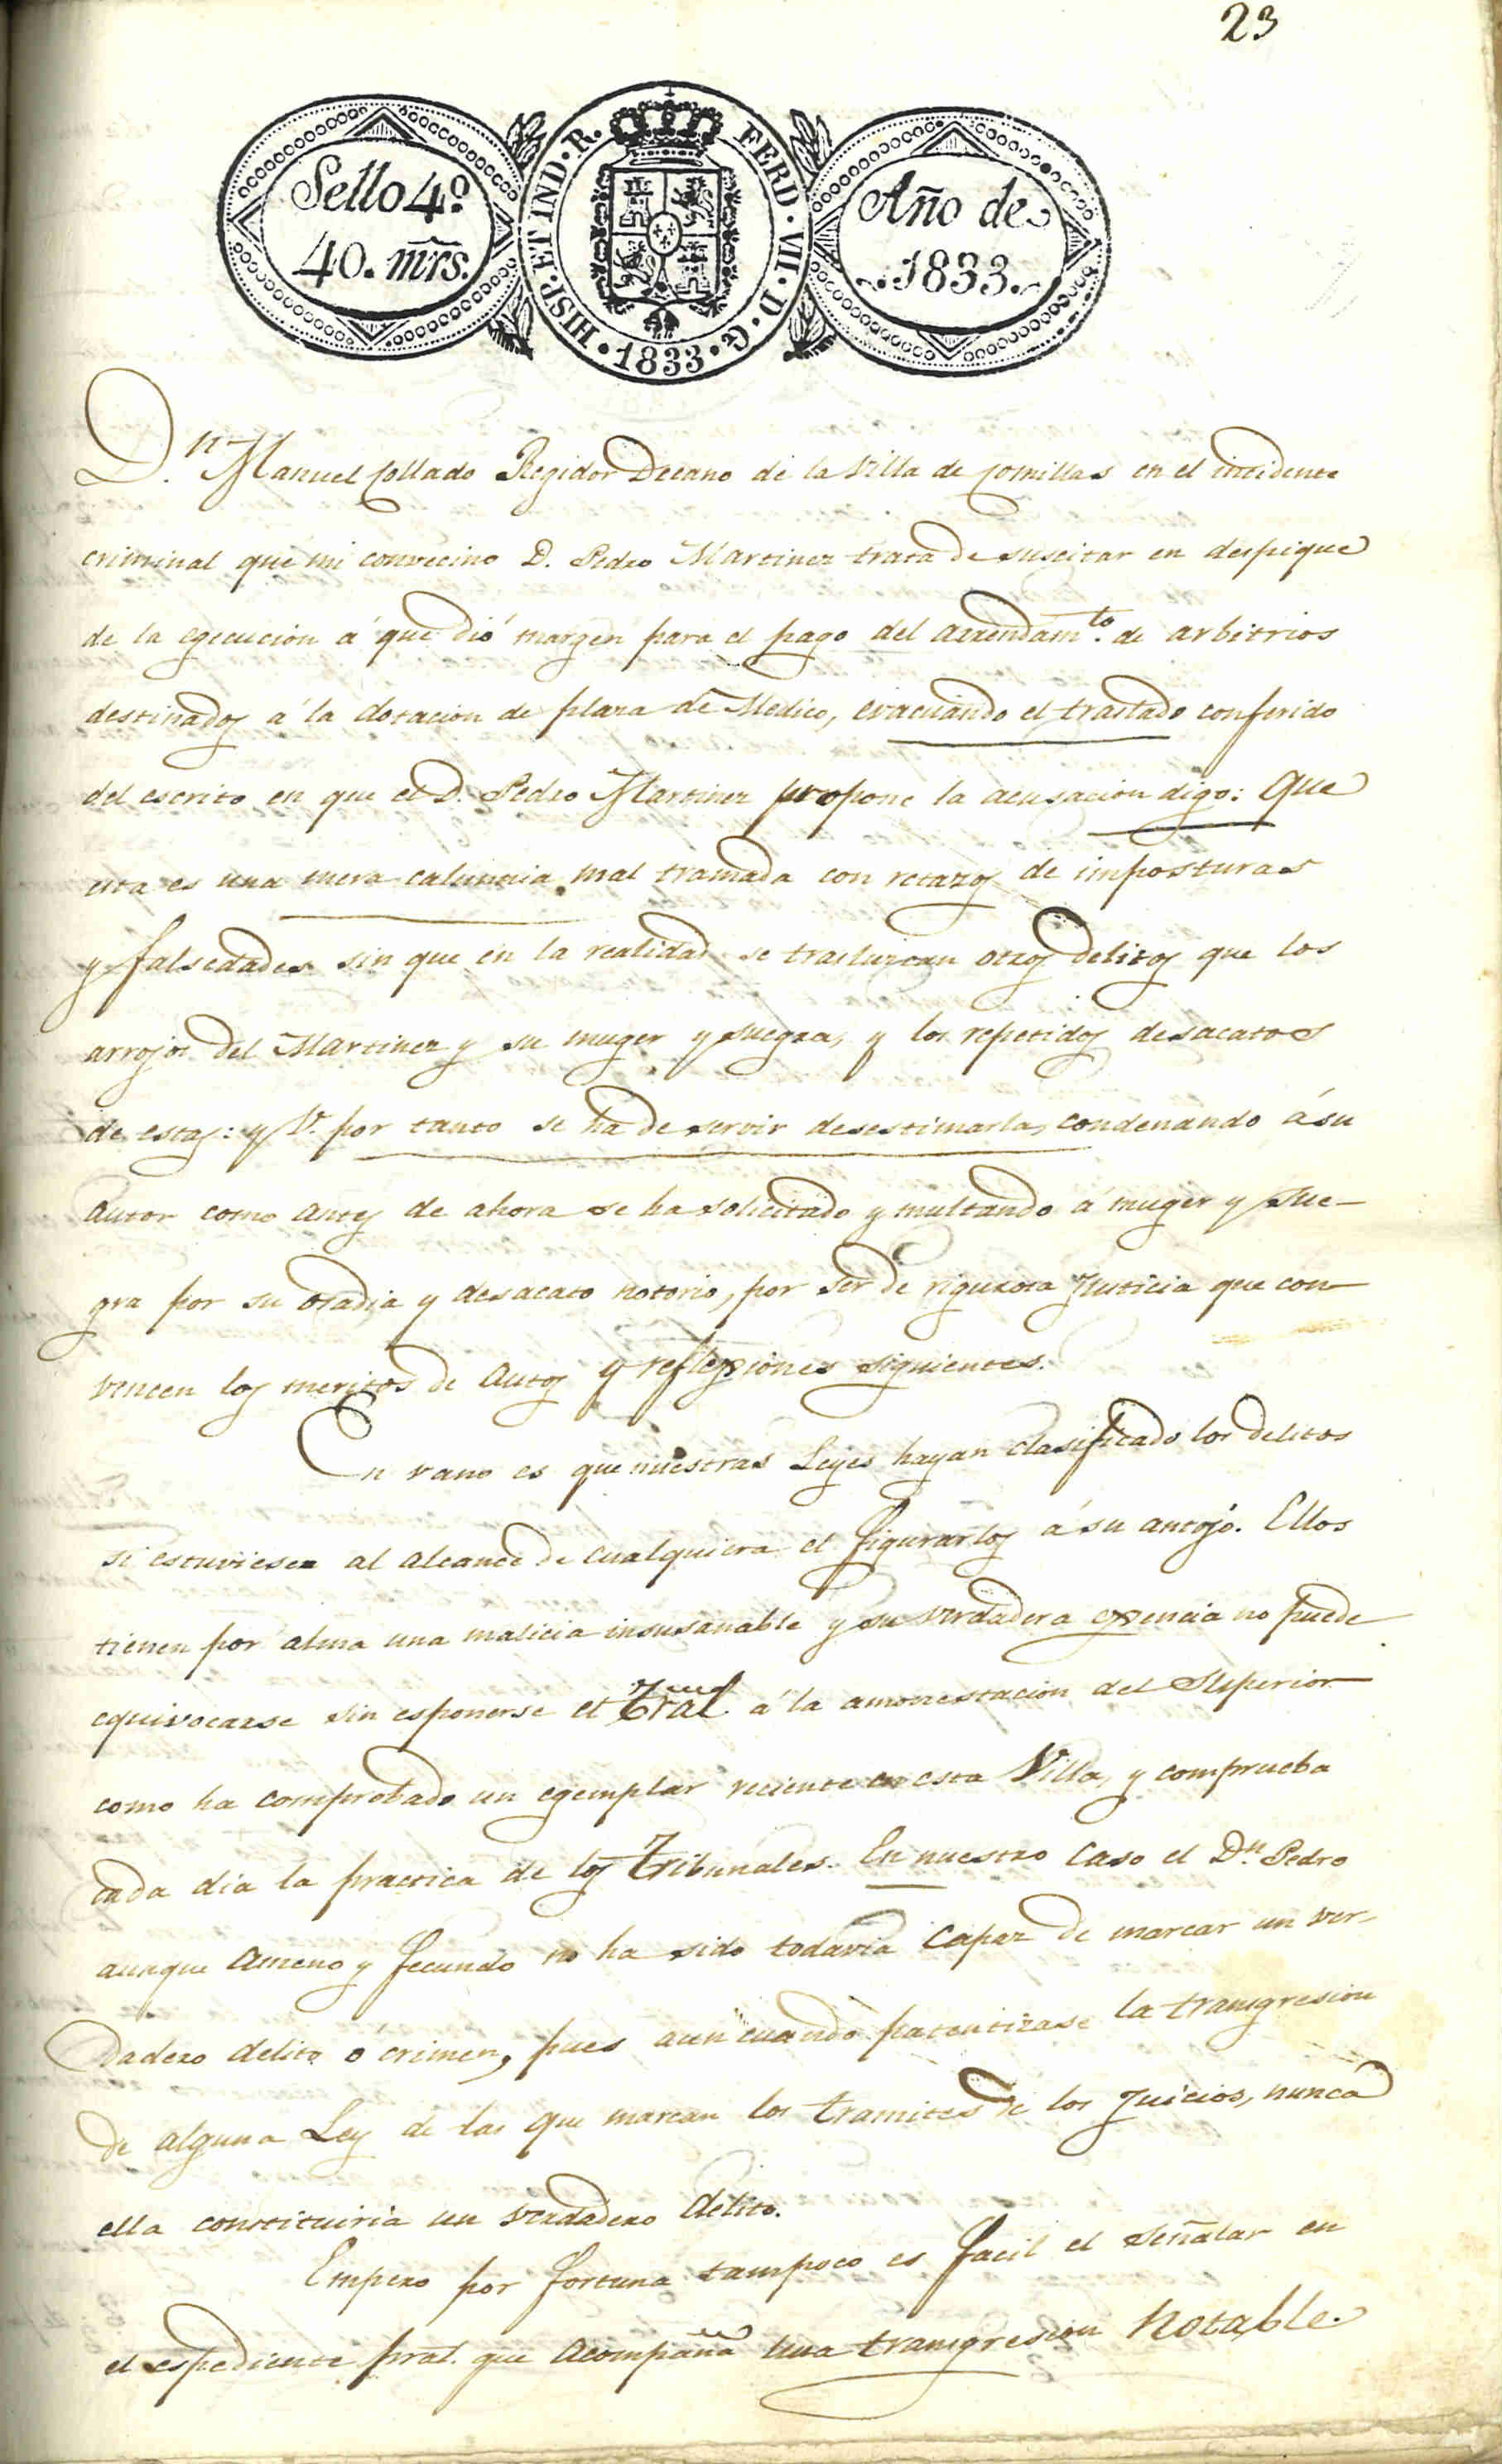 23
Sello 4º
40. mrs.
HISP. ET IND. R. FERD. VII. D. G. 1833
Año de
1833.
D.n Manuel Collado Regidor Decano de la Villa de Comillas en el incidente
criminal que mi convecino D. Pedro Martinez trata de suscitar en despique
de la egecucion á que dió margen para el pago del arrendam.to de arbitrios
destinados á la dotacion de plaza de Medico, evacuando el traslado conferido
del escrito en que el D. Pedro Martinez propone la acusacion digo: Que
esta es una mera calumnia mal tramada con retazos de imposturas
y falsedades sin que en la realidad se trasluzcan otros delitos que los
arrojos del Martinez y su muger y suegra, y los repetidos desacatos
de estas: y V. por tanto se ha de servir desestimarla, condenando á su
autor como antes de ahora se ha solicitado y multando á muger y sue-
gra por su osadia y desacato notorio, por ser de rigurosa Justicia que con
vencen los meritos de autos y reflexiones siguientes.
En vano es que nuestras Leyes hayan clasificado los delitos
si estuviesen al alcance de cualquiera el figurarlos á su antojo. Ellos
tienen por alma una malicia insusanable y su verdadera exencia no puede
equivocarse sin esponerse el Tral á la amonestacion del Superior
como ha comprobado un egemplar reciente en esta Villa, y comprueba
cada dia la practica de los Tribunales. En nuestro caso el D.n Pedro
aunque ameno y fecundo no ha sido todavia capaz de marcar un ver-
dadero delito ó crimen, pues aun cuando patentizase la transgresion
de alguna Ley de las que marcan los tramites de los Juicios, nunca
ella constituiria un verdadero delito.
Empero por fortuna tampoco es facil el señalar en
el espediente pral. que acompaña una transgresion notable